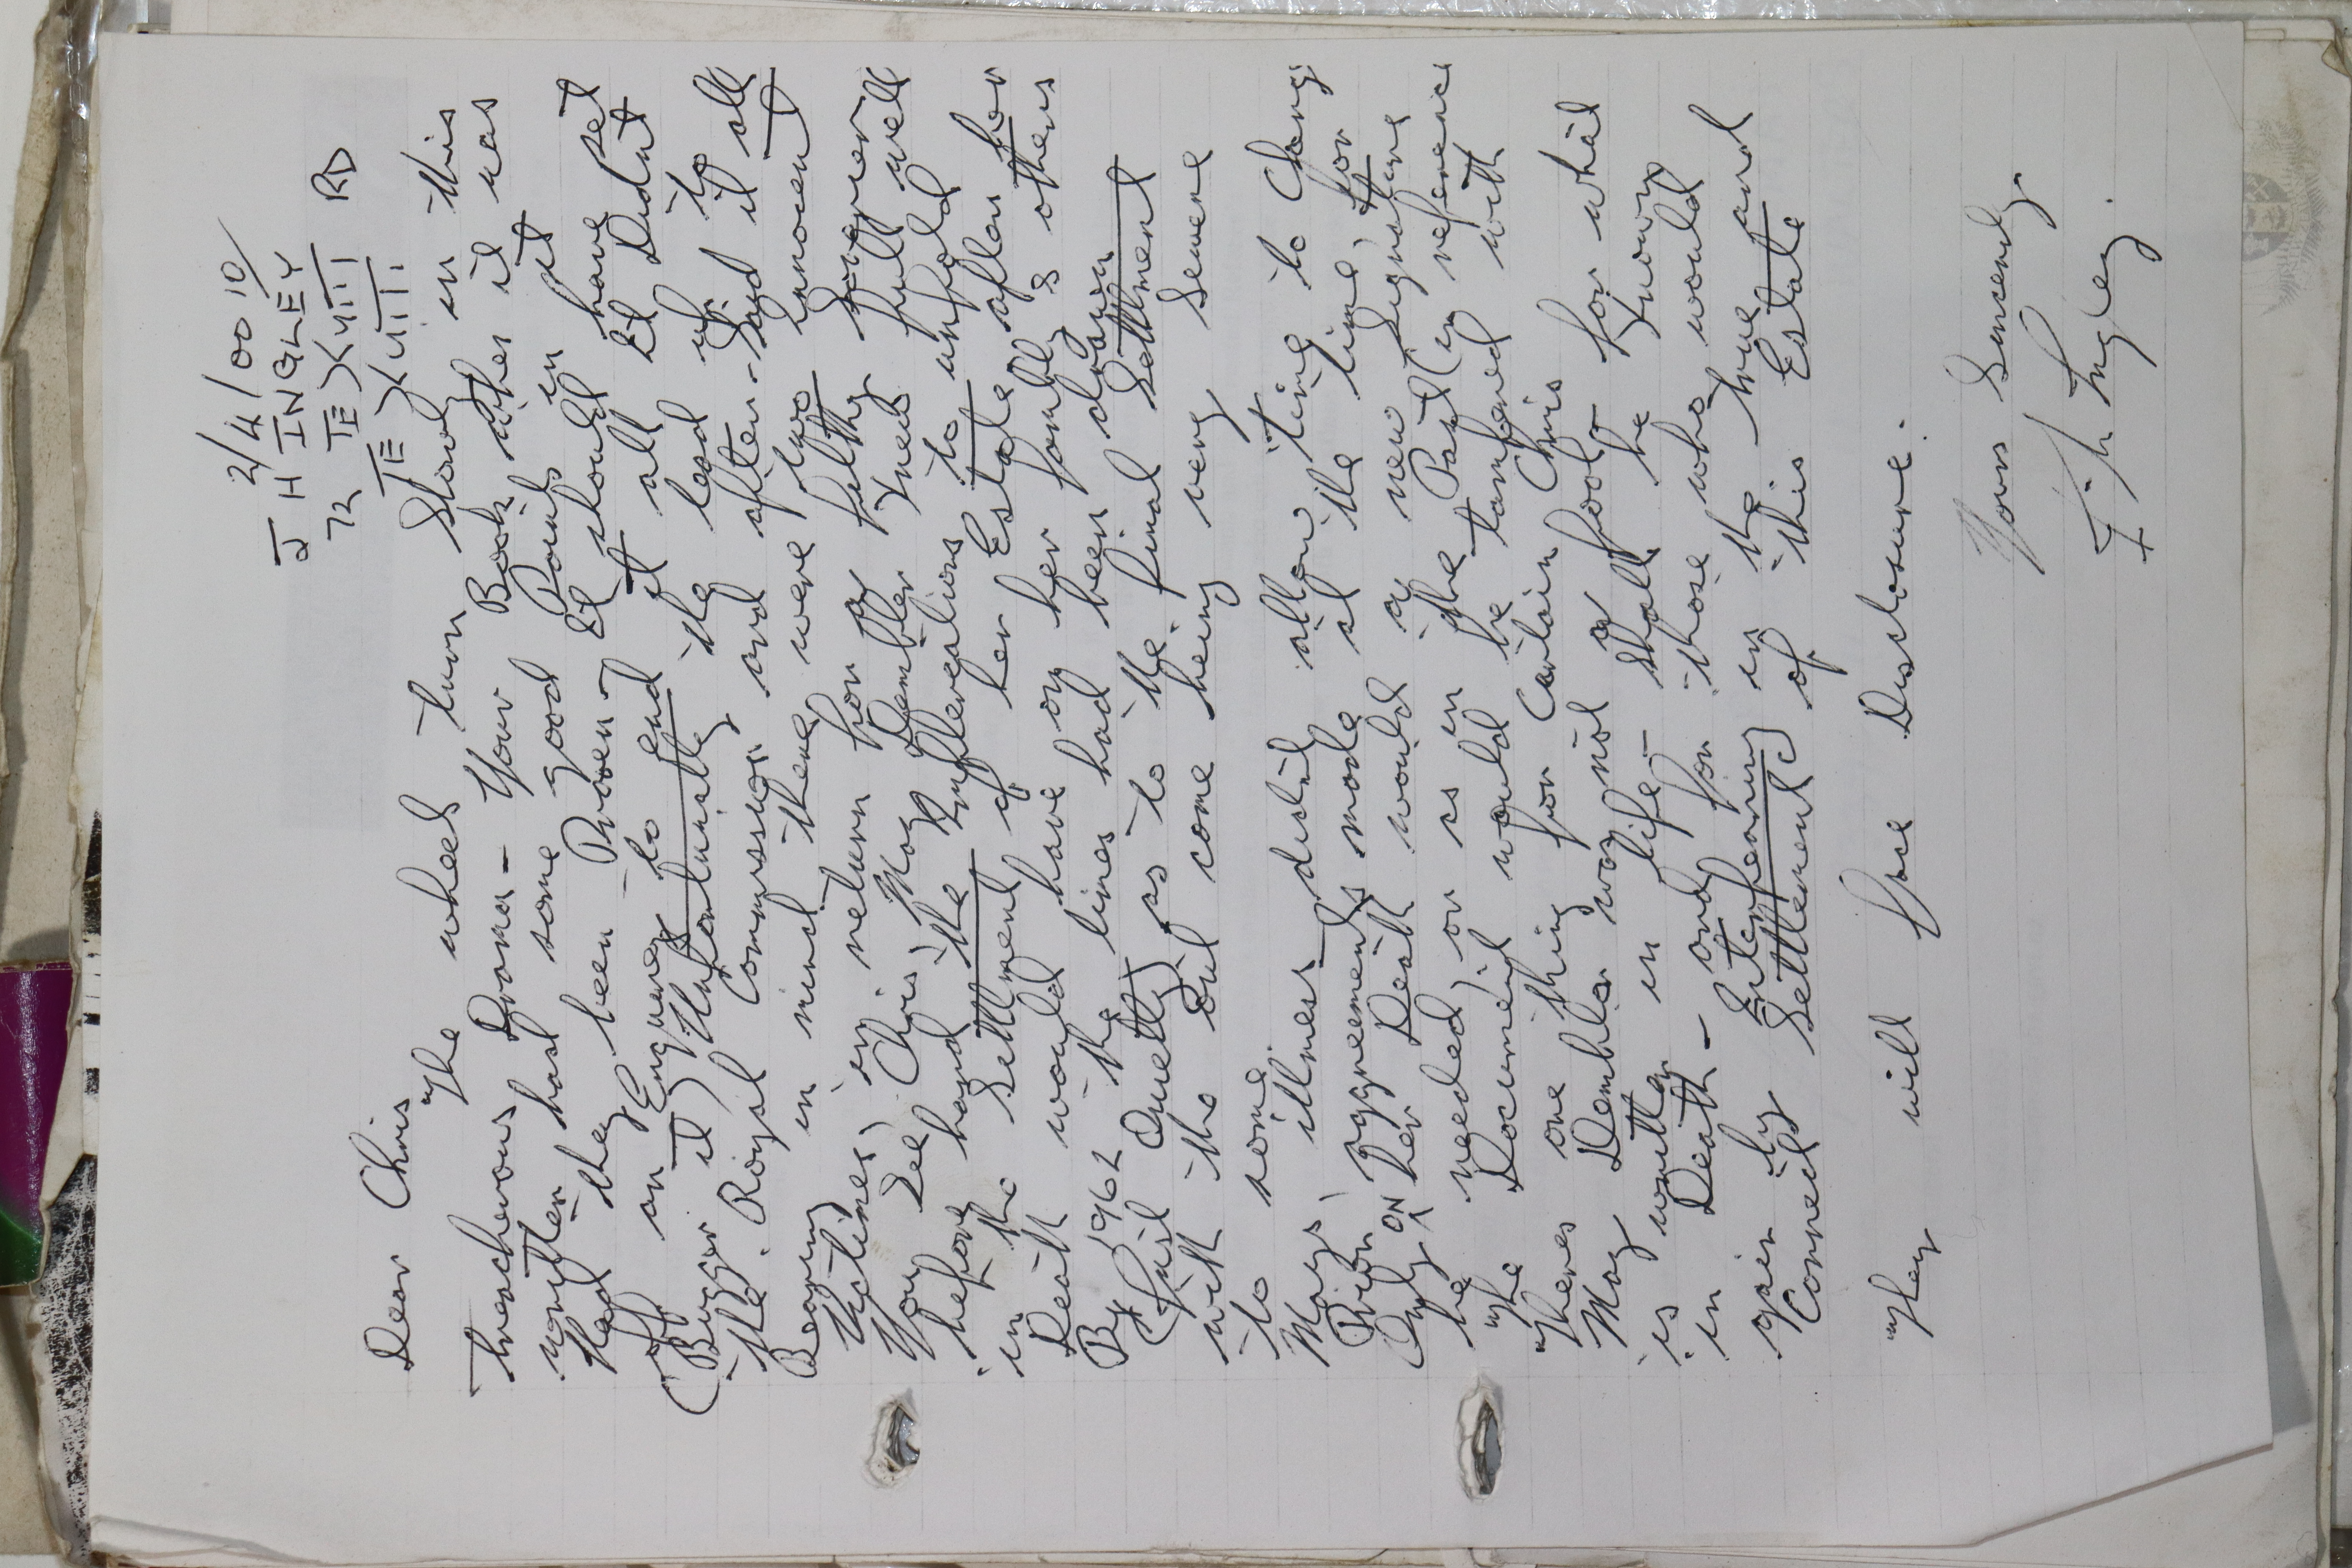 2/4/00 10/
J H INGLEY
72 TE
TE RD
Dear Chris
The wheels turn slowly in this
treacherous Drama - Your Book when it was
written had some good Points in it
Had they been Proven - It should have set
off an Enquirey to end it all It Didnt
(Bugger it) Unfortunatly the lead up to
the Royal Commyssion and after - Said it all
Bearing in mind there were two innocent
Victimes, in return for a filthy Sovereign
You See Chris, May Dembler knew full well
before hand the Reppleverations to unfold
in the Settlment of her Estate after her
Death would have on her family & others
By 1962 the lines had been drawn
(Just Quietly) as to the final Settlment
with the out come being very severe
to some
Mays illness didnt allow time to Change
Prior Aggreements made at the time, for
Only ON her Death would a new Signature
be needed, or as in the Past (in reference
The Document would be tampered with
Theres one thing for Certain Chris
May Dembler was not a fool - for what
is written in life - shall be known
in Death - and for those who would
gain by Interfearing in the true and
Correct Settlement(s) of this Estate
They will face Disclosure.
Yours Sincerely
J. H Ingley.